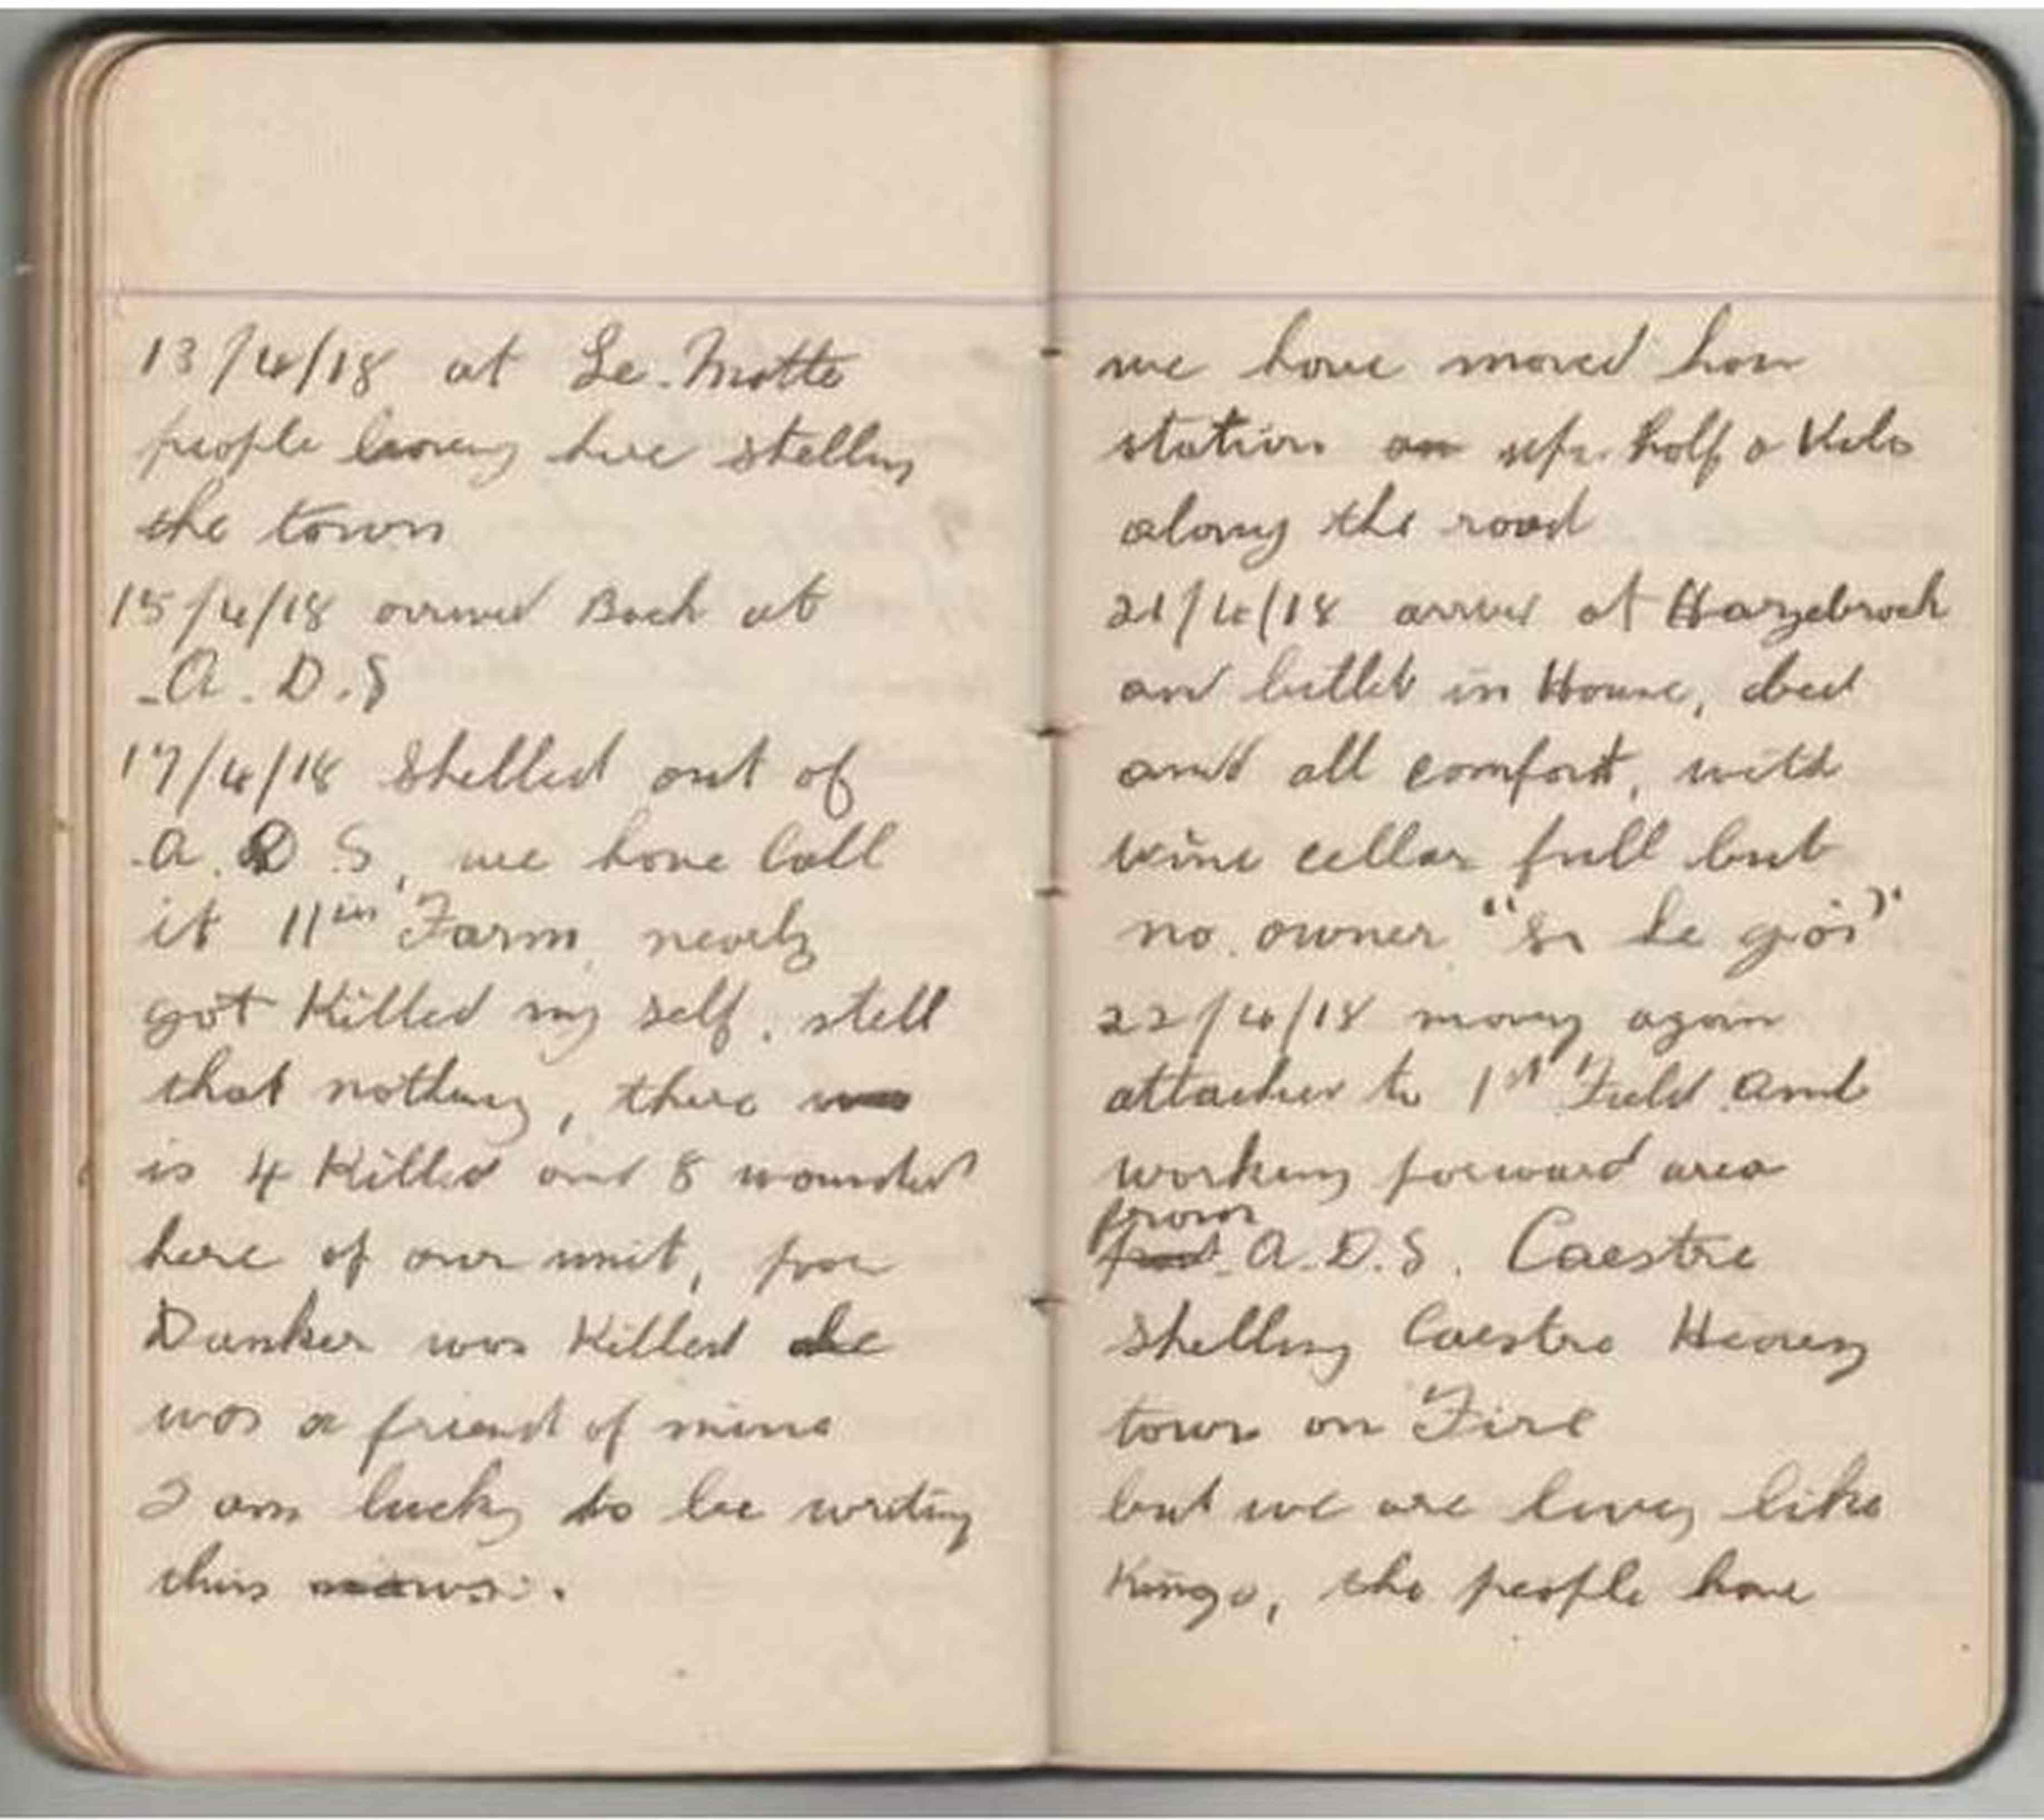 13/4/18 at Le. Motte
people leaving here shelling
the town
15/4/18 arrived Back at
A. D. S
17/4/18 Shelled out of
A. D. S, we have Call
it 11in Farm, nearly
got Killed my self, still
that nothing, there was
is 4 Killed and 8 wounded
here of our unit, poor
Dunker was Killed he
was a friend of mine
I am lucky to be writing
this
we have moved
station up. half a Kilo
along the road
21/4/18 arrived at Hazebrock
and billet in House, bed
and all comfort, with
wine cellar full but
no. owner
22/4/18 moving again
attached to 1st Field Amb
working forward area
from
A.D.S. Caestre
shelling Caestre Heavey
town on Fire
but we are living like
Kings, the people have